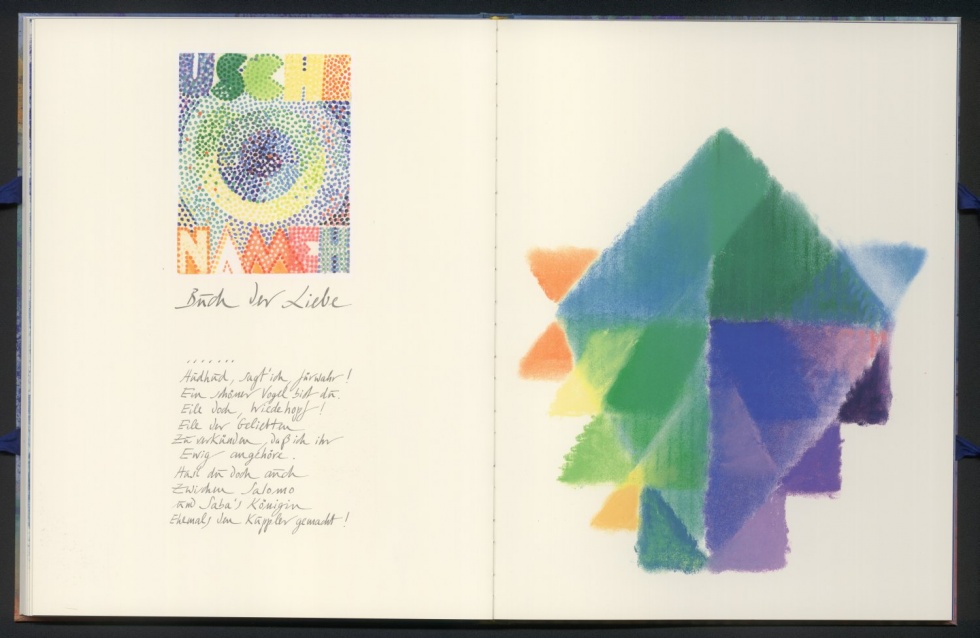 USCHK
NAMEH
Buch der Liebe
.......
Hudhud, sagt' ich, fürwahr!
Ein schöner Vogel bist du.
Eile doch, Wiedehopf!
Eile der Geliebten
Zu verkünden, daß ich ihr
Ewig angehöre.
Hast du doch auch
Zwischen Salomo
und Saba's Königin
Ehemals den Kuppler gemacht!